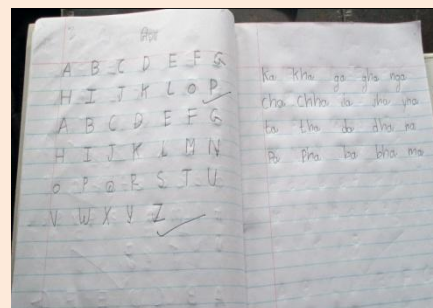 A B C D E F G
H I J K L O P
A B C D E F G
H I J K L M N
O P Q R S T U
V W X Y Z
Ka kha ga gha nga
cha chha da jha yna
ta tha da dha na
Pa Pha ba bha ma